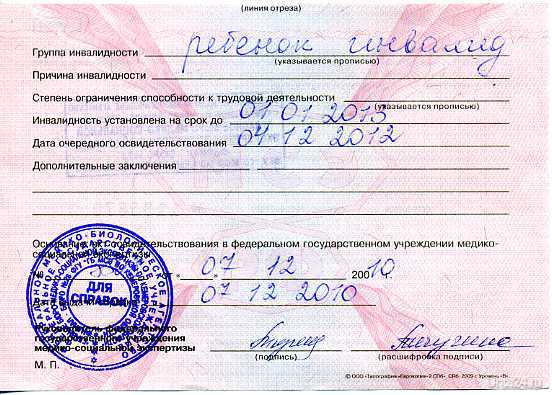 (линия отреза)
Группа инвалидности ребенок инвалид
(указывается прописью)
Причина инвалидности
Степень ограничения способности к трудовой деятельности
(указывается прописью)
Инвалидность установлена на срок до 01 01 2013
Дата очередного освидетельствования 04 12 2012
Дополнительные заключения
Основание: акт освидетельствования в федеральном государственном учреждении медико-
социальной экспертизы
№ от « 07 12 2010.
Дата выдачи 07 12 2010
ДЛЯ
СПРАВОК
Руководитель федерального
государственного учреждения
медико-социальной экспертизы
(подпись) (расшифровка подписи)
М. П.